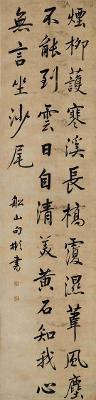 煙柳護寒溪長橋覆濕葦風塵
不能到雲日自清美黃石知我心
無言坐沙尾
山彬書